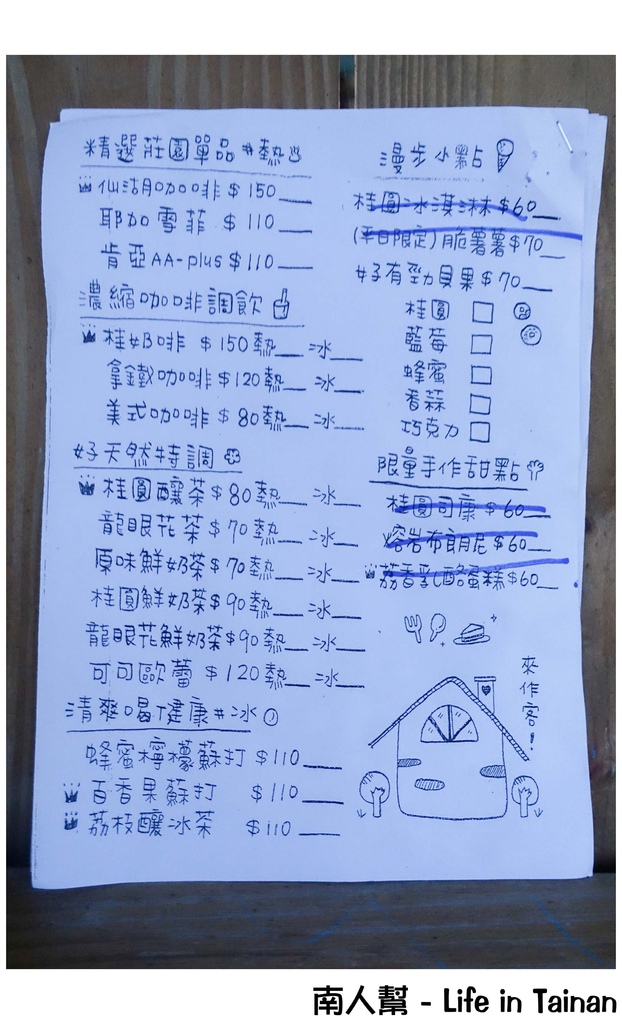 精選莊園單品 #熱
仙湖咖啡 $150___
耶加雪菲 $110___
肯亞AA-plus $110___
濃縮咖啡調飲
桂奶啡 $150熱___冰___
拿鐵咖啡 $120熱___冰___
美式咖啡 $80熱___冰___
好天然特調
桂圓釀茶 $80熱___冰___
龍眼花茶 $70熱___冰___
原味鮮奶茶 $70熱___冰___
桂圓鮮奶茶 $90熱___冰___
龍眼花鮮奶茶 $90熱___冰___
可可歐蕾 $120熱___冰___
清爽喝健康 #冰
蜂蜜檸檬蘇打 $110___
百香果蘇打 $110___
荔枝釀冰茶 $110___
漫步小點
桂圓冰淇淋 $60___
(平日限定)脆薯薯 $70___
好有勁貝果 $70___
桂圓 □
藍莓 □
蜂蜜 □
香蒜 □
巧克力 □
限量手作甜點
桂圓司康 $60___
熔岩布朗尼 $60___
荔香乳酪蛋糕 $60___
來作客!
南人幫 - Life in Tainan